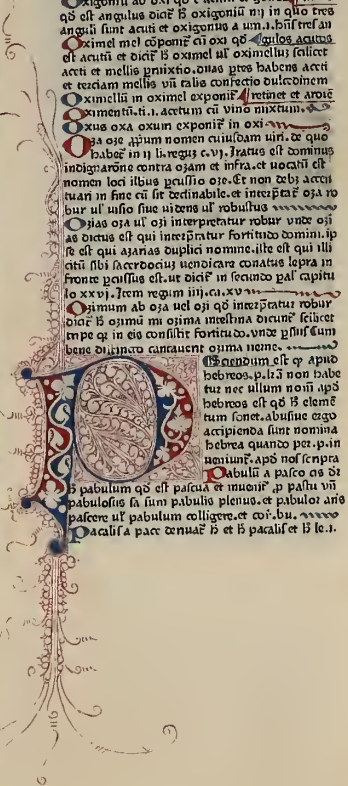 qđ est angulus dicit̄ h̄ oxigoniū nij in q̄bo tres
anguli sunt acuti et oxigonus a um.i.hn̄s tres an
Oximel mel cōponit̄ cū oxi qđ gulos acutos
est acutū et dicit̄ h̄ oximel ul' oximellū scilicet
aceti et mellis ꝑmixtio.duas ptes habens aceti
et terciam mellis vn̄ talis confectio dulcedinem
Oximellū in oximel exponit̄ retinet et aroīē
Oximentū.ti.i.acetum cū vino mixtum.
Oxus oxa oxum exponit̄ in oxi
Oza oze ꝓprium nomen cuiusdam uiri.de quo
habet̄ in ij li.regū c.vj.Iratus est dominus
indignatione contra ozam et infra.et uocatū est
nomen loci illius pcussio oze.Et non debz accen
tuari in fine cū sit declinabile.et interp̄tat̄ oza ro
bur ul' uisio siue uidens ul' robustus
Ozias oza ul' ozi interpretatur robur vnde ozi
as dictus est qui interp̄tatur fortitudo domini.ip
se est qui azarias duplici nomine.iste est qui illi
citū sibi sacerdociū uendicare conatus lepra in
fronte pcussus est.ut dicit̄ in secundo pal' capitu
lo xxvj.Item regum iiij.ca.xv
Ozimum ab oza uel ozi qđ interp̄tatur robur
dicit̄ h̄ ozimū mi ozima intestina dicunt̄ scilicet
tripe q̄ in eis consistit fortitudo.vnde psius
bene cantauerit ozima uerne.
P Dicendum est q̄ apud
hebreos.p.lr̄a non habe
tur nec ullum nom̄ apđ
hebreos est qđ h̄ elemē
tum sonet.abusiue ergo
accipienda sunt nomina
hebrea quando per.p.in
ueniunt̄.apđ nos scripta
Pabulū a pasco cis dr̄
h̄ pabulum qđ est pascua et inuenit̄ ꝓ pastu vn̄
pabulosus sa sum pabulis plenus.et pabulor aris
pascere ul' pabulum colligere.et cor̄.bu.
Pacalis a pace deriuat̄ h̄ et h̄ pacalis et h̄ le.i.